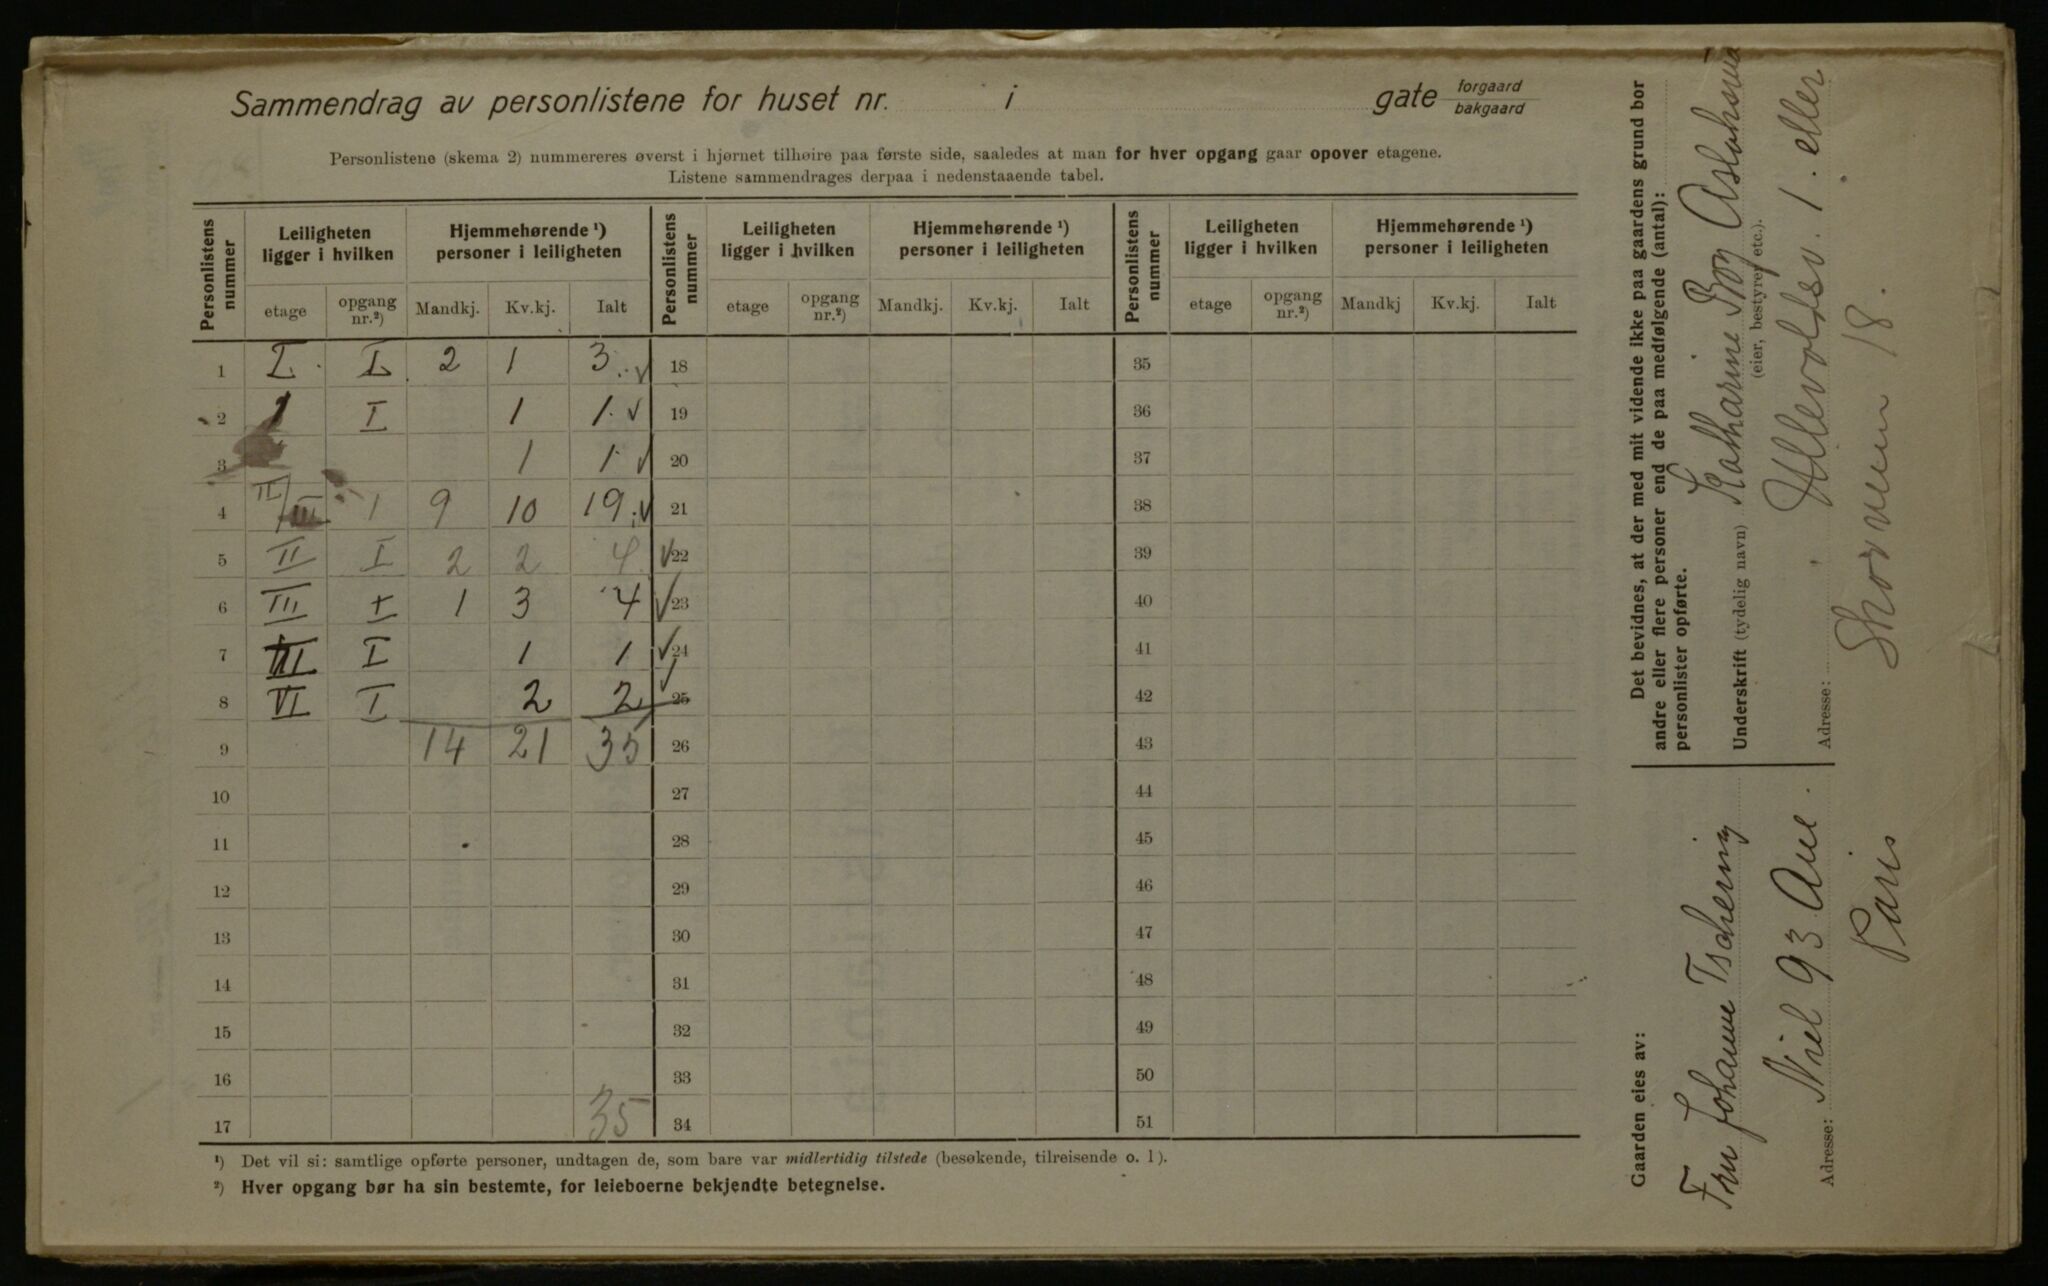 Sammendrag av personlistene for huset nr. i gate forgaard bakgaard
Personlistene (skema 2) nummereres øverst i hjørnet tilhøire paa første side, saaledes at man for hver opgang gaar opover etagene.
Listene sammendrages derpaa i nedenstaaende tabel.
Personlistens nummer | Leiligheten ligger i hvilken | Hjemmehørende ¹) personer i leiligheten | Personlistens nummer | Leiligheten ligger i hvilken | Hjemmehørende ¹) personer i leiligheten | Personlistens nummer | Leiligheten ligger i hvilken | Hjemmehørende ¹) personer i leiligheten
etage | opgang nr.²) | Mandkj. | Kv.kj. | Ialt | etage | opgang nr.²) | Mandkj. | Kv.kj. | Ialt | etage | opgang nr.²) | Mandkj | Kv.kj. | Ialt
1 I. I 2 1 3. ✓ 18 35
2 1 I 1 1. ✓ 19 36
3 1 1 ✓ 20 37
4 II/III 1 9 10 19. ✓ 21 38
5 II I 2 2 4 ✓ 22 39
6 III I 1 3 4 ✓ 23 40
7 III I 1 1 ✓ 24 41
8 VI I 2 2 ✓ 25 42
9 14 21 35 26 43
10 27 44
11 28 45
12 29 46
13 30 47
14 31 48
15 32 49
16 33 50
17 35 34 51
¹) Det vil si: samtlige opførte personer, undtagen de, som bare var midlertidig tilstede (besøkende, tilreisende o. l).
²) Hver opgang bør ha sin bestemte, for leieboerne bekjendte betegnelse.
Det bevidnes, at der med mit vidende ikke paa gaardens grund bor
andre eller flere personer end de paa medfølgende (antal):
personlister opførte.
Underskrift (tydelig navn) Katharine Boy
(eier, bestyrer etc.).
Adresse: Ullevoldsv. 1. eller
Skovveien 18.
Gaarden eies av:
Fru Johanne Tschering
Adresse: Niel 93 Ave.
Paris